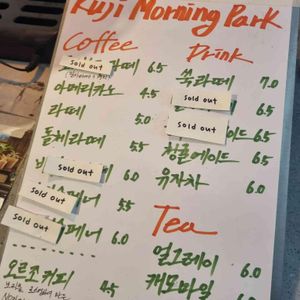 Kuji Morning Park
Coffee
sold out 라떼 6.5
아메리카노 4.5
라떼 5.0
돌체라떼 5.5
sold out 6.0
sold out 5.5
sold out 페너 6.0
오르조 커피 4.5
Drink
쑥라떼 7.0
sold out
sold out 이드 6.5
청귤에이드 6.5
유자차 6.0
Tea
얼그레이 6.0
캐모마일 6.0